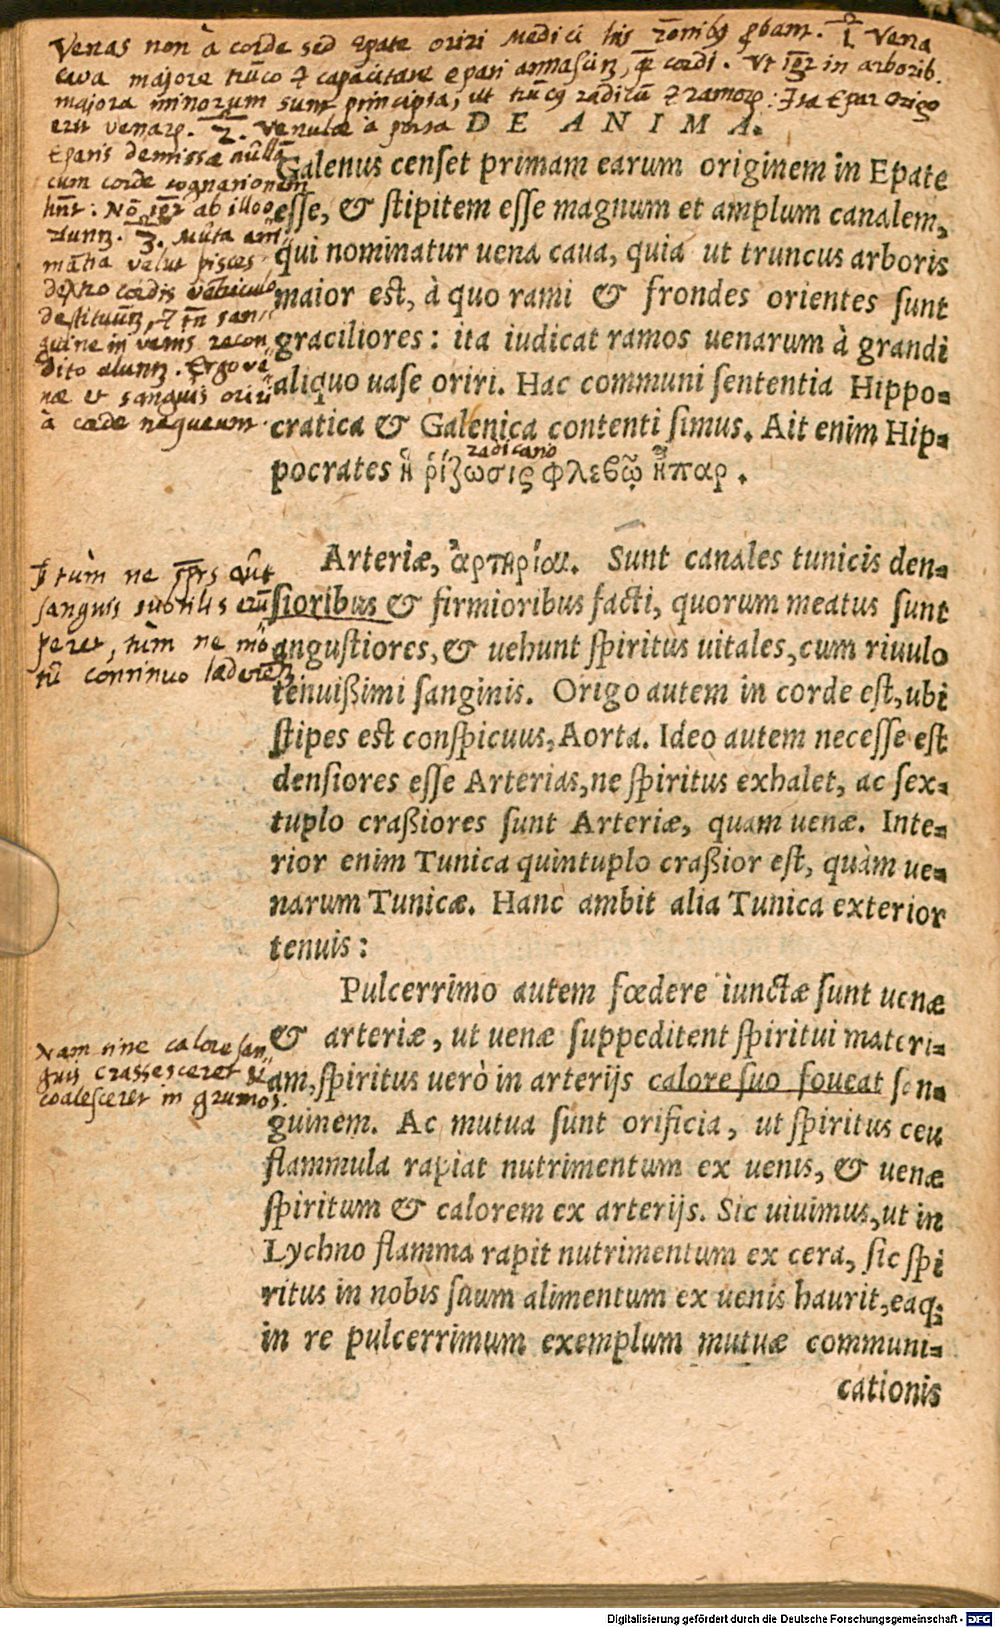 Venas non à corde sed Epate oriri Medici his rōnibꝯ ꝓbant. 1 Vena
cava majore trūco & capacitate epati annascit̃, q̃ cordi. Vt igr̃ in arborib.
majora minorum sunt principia, ut trūcꝯ radicū & ramorꝝ: Ita Epar origo
erit venarꝝ. 2. Venulae à
D E A N I M A.
Epatis demissae nullā
cum corde cognationem
hñt: Nō igr̃ ab illo o-
riunt̃. 3. Multa ani-
mātia velut pisces
dextro cordis
destituunt̃, & tñ san-
guine in venis recon-
dito alunt̃. Ergo ve-
nae et sanguis oriri
à corde nequeunt.
Galenus censet primam earum originem in Epate
esse, & stipitem esse magnum et amplum canalem,
qui nominatur uena caua, quia ut truncus arboris
maior est, à quo rami & frondes orientes sunt
graciliores: ita iudicat ramos uenarum à grandi
aliquo uase oriri. Hac communi sententia Hippo-
cratica & Galenica contenti simus. Ait enim Hip-
radicatio
pocrates ἡ ῥίζωσις φλεβῶν ἧπαρ.
Arteriæ, ἀρτηρίαι. Sunt canales tunicis den-
sioribus & firmioribus facti, quorum meatus sunt
angustiores, & uehunt spiritus uitales, cum riuulo
tenuißimi sanginis. Origo autem in corde est, ubi
stipes est conspicuus, Aorta. Ideo autem necesse est
densiores esse Arterias, ne spiritus exhalet, ac sex-
tuplo craßiores sunt Arteriæ, quam uenæ. Inte-
rior enim Tunica quintuplo craßior est, quàm ue-
narum Tunicæ. Hanc ambit alia Tunica exterior
tenuis:
tùm ne
sanguis subtilis erū
peret, tùm ne mo
tu continuo laederent̃
Pulcerrimo autem fœdere iunctæ sunt uenæ
& arteriæ, ut uenæ suppeditent spiritui materi-
am, spiritus uerò in arterijs calore suo foueat san-
guinem. Ac mutua sunt orificia, ut spiritus ceu
flammula rapiat nutrimentum ex uenis, & uenæ
spiritum & calorem ex arterijs. Sic uiuimus, ut in
Lychno flamma rapit nutrimentum ex cera, sic spi
ritus in nobis suum alimentum ex uenis haurit, eaq;
in re pulcerrimum exemplum mutuæ communi-
cationis
Nam sine calore san-
guis crassesceret &
coalesceret in grumos.
Digitalisierung gefördert durch die Deutsche Forschungsgemeinschaft - DFG